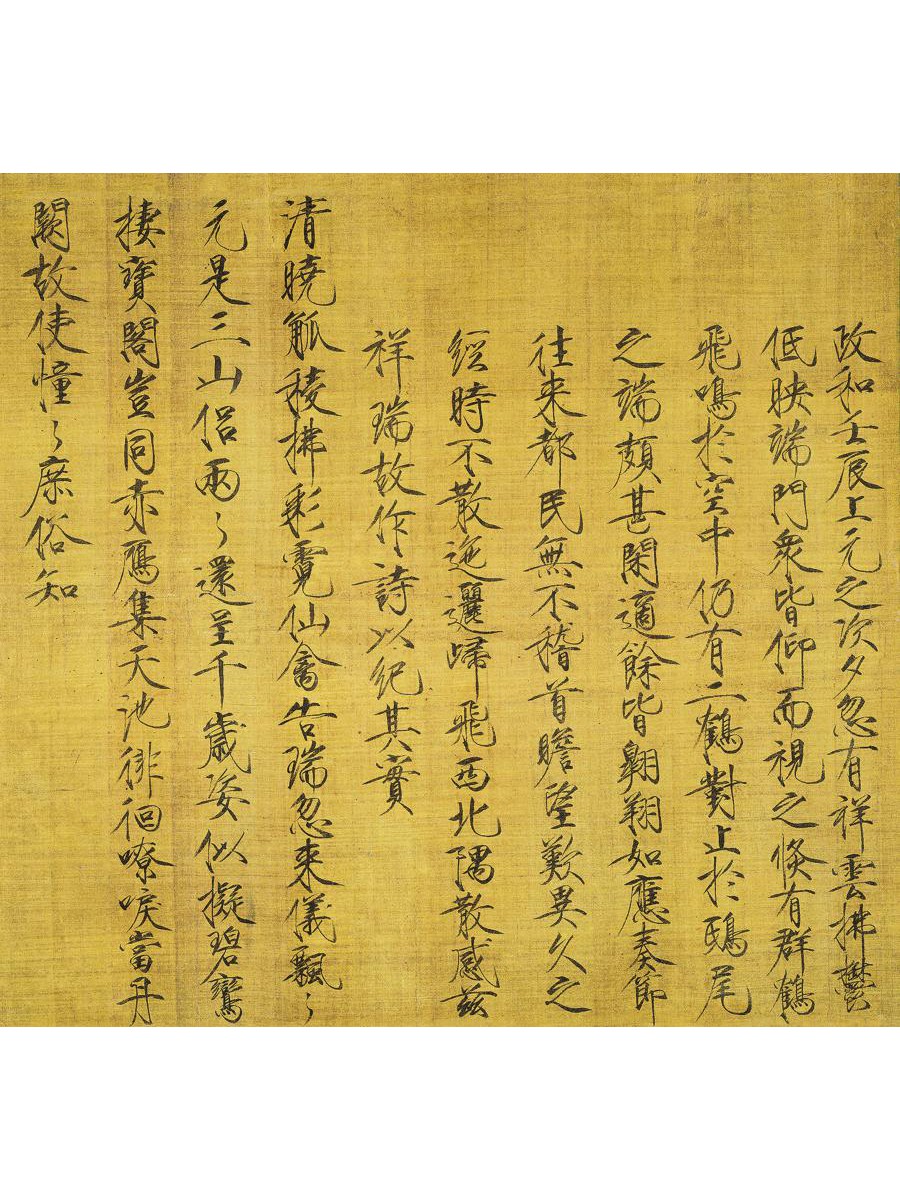 政和壬辰上元之次夕忽有祥雲拂鬱
低映端門衆皆仰而視之倏有群鶴
飛鳴於空中仍有二鶴對止於鴟尾
之端頗甚閑適餘皆翺翔如應奏節
往来都民無不稽首瞻望歎異久之
經時不散迤邐歸飛西北隅散感茲
祥瑞故作詩以紀其實
清曉觚稜拂彩霓仙禽告瑞忽来儀飄〻
元是三山侣兩〻還呈千歲姿似擬碧鸞
棲寳閣豈同赤鴈集天池徘徊嘹唳當丹
闕故使憧〻庶俗知